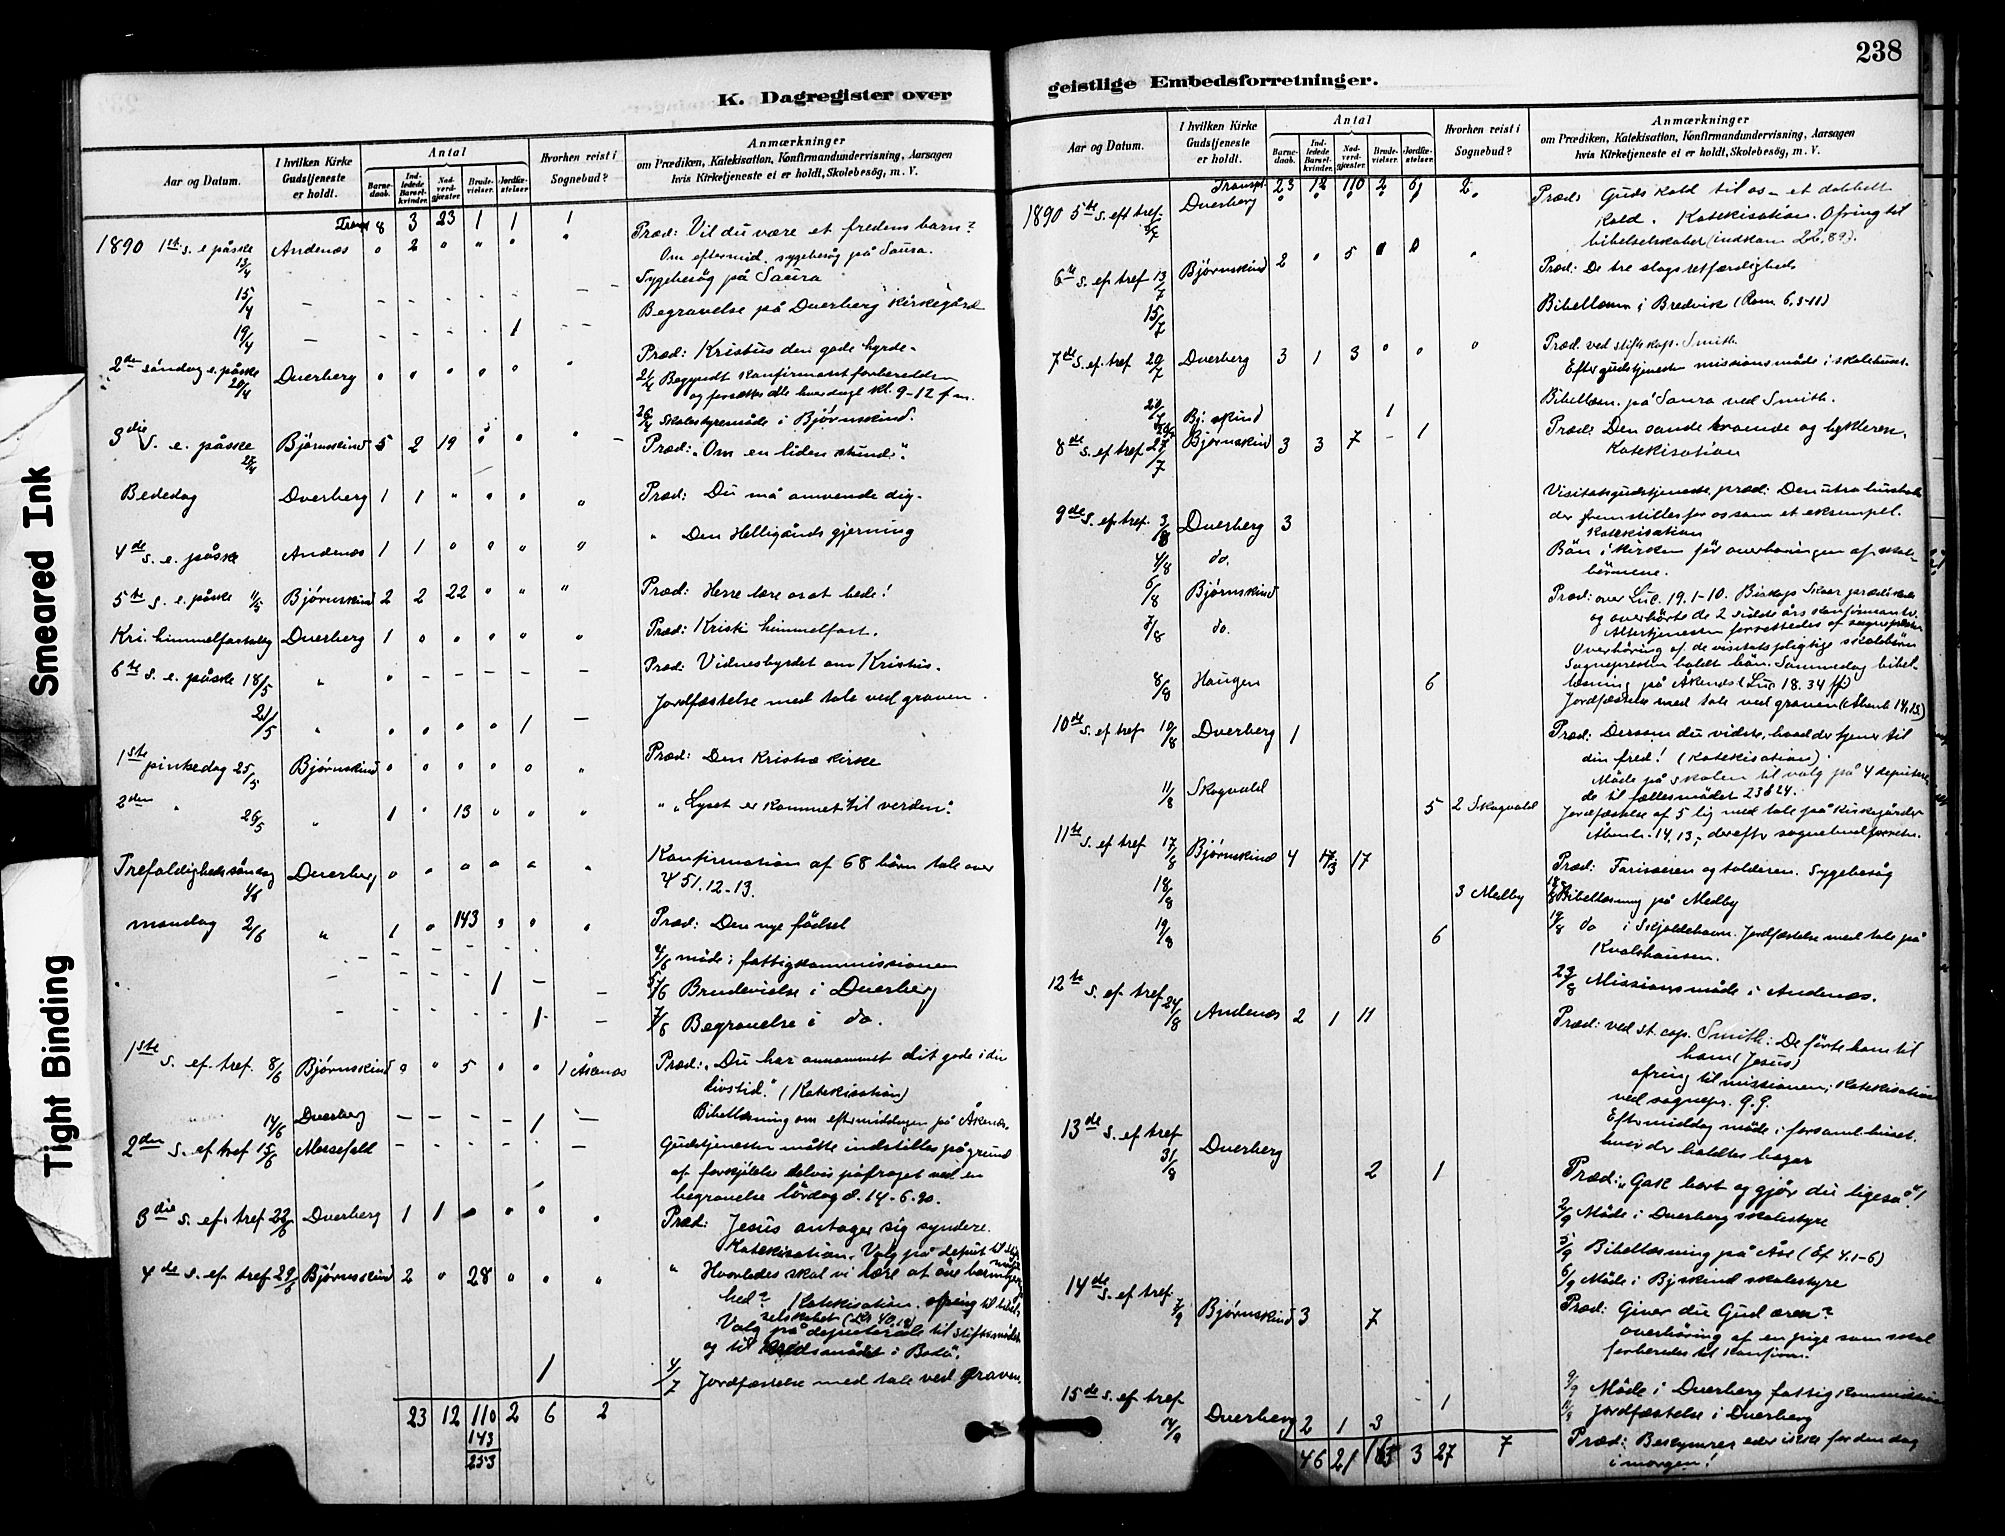 Smeared Ink
Tight Binding
K. Dagregister over
Aar og Datum.
I hvilken Kirke Gudstjeneste er holdt.
Antal
Barnedaab.
Indledede Barselkvinder.
Nadverdgjester.
Brudevielser.
Jordfæstelser.
Hvorhen reist i Sognebud?
Anmærkninger
om Prædiken, Katekisation, Konfirmandundervisning, Aarsagen
hvis Kirketjeneste ei er holdt, Skolebesøg, m. V.
8 3 23 1 1 1
1890 1ste s. e. påske 13/4 Andenæs " 2 " " " " Præd: Vil du være et fredens barn?
Om eftermid. sygebesög på Saura.
15/4 Sygebesög på Saura
19/4 1 Begravelse på Dverberg kirkegård
2den söndag e. påske 20/4 Dverberg Præd: Kristus den gode hyrde.
21/4 Begyndt konfirmantforberedelsen
og fortsættes alle hverdage kl. 9-12 fm.
26/4 Skolestyremöde i Bjørnskind.
3die s. e. påske 27/4 Bjørnskind 5 2 19 Præd: "Om en liden stund".
Bededag Dverberg 1 1 Præd: Du må omvende dig.
4de s. e. påske Andenæs 1 1 " Den Helligånds gjerning
5te s. e. påske 11/5 Bjørnskind 2 2 22 Præd: Herre lære os at bede!
Kri. himmelfartsdag Dverberg 1 Præd: Kristi himmelfart.
6te s. e. påske 18/5 " Præd: Vidnesbyrdet om Kristus.
21/5 " 1 Jordfæstelse med tale ved graven.
1ste pinsedag 25/5 Bjørnskind Præd: Den kristne kirke
2den " 26/5 " 1 " 13 " "Lyset er kommet til verden".
Trefoldighedssöndag 1/6 Dverberg Konfirmation af 68 börn tale over
Ψ 51.12-13.
mandag 2/6 " 1 143 Præd: Den nye fødsel
4/6 möde i fattigkommissionen
1 5/6 Brudevielse i Dverberg
1 7/6 Begravelse i do.
1ste s. ef. tref. 8/6 Bjørnskind " 5 1 Åknæs Præd: "Du har annammet dit gode i din
livstid." (Katekisation)
Bibellæsning om eftermiddagen på Åknæs.
14/6 Dverberg 1
2den s. ef tref 15/6 Messefald Gudstjenesten måtte indstilles på grund
af forkjölelse delvis pådraget ved en
begravelse lördag d. 14-6-90.
3die s. ef. tref 22/6 Dverberg 1 1 Præd: Jesus antager sig syndere.
Katekisation. Valg på deput til
4de s. ef. tref 29/6 Bjørnskind 2 28 " Hvorledes skal vi lære at öve barmhjertig
hed? Katekisation. ofring til bibel
selskabet
Valg på deputerede til stiftsmödet
og til i Bodö.
1 4/7 Jordfæstelse med tale ved graven.
23 12 110 2 6 2
143
253
238
geistlige Embedsforretninger.
Aar og Datum.
I hvilken Kirke Gudstjeneste er holdt.
Antal
Barnedaab.
Indledede Barselkvinder.
Nadverdgjester.
Brudevielser.
Jordfæstelser.
Hvorhen reist i Sognebud?
Anmærkninger
om Prædiken, Katekisation, Konfirmandundervisning, Aarsagen
hvis Kirketjeneste ei er holdt, Skolebesög, m. V.
Transpt. 23 12 110 2 6 2
1890 5te s. eft tref. 6/7 Dverberg Præd: Guds kald til os - et dobbelt
kald. Katekisation. Ofring til
bibelselskabet (indkom 22,89).
6te s. ef tref 13/7 Bjørnskind 2 " 5 Præd: De tre slags retfærdigheds
15/7 Bibellæsn. i Bredvik (Rom 6.3-11)
7de s. ef. tref 20/7 Dverberg 3 1 3 Præd. ved stiftskap. Smith.
Efter gudstjenesten missionsmöde i skolehuset.
Bj. skind 1 Bibellæsn. på Saura ved Smith.
8de s. ef tref 27/7 Bjørnskind 3 3 7 - 1 Præd: Den sande troende og hykleren.
Katekisation
9de s. ef tref. 3/8 Dverberg 3 Visitatsgudstjeneste, præd: Den utro hushold
der fremstilles for os som et exempel.
Katekisation
4/8 do. Bön i kirken för overhöringen af skole-
börnene.
6/8 Bjørnskind Præd: over Luc. 19.1-10. Biskop prædikede
og overhörte de 2 sidste års konfirmanter.
Altertjenesten forrettedes af sognepresten
7/8 do. Overhöring af de visitatspligtige skolebörn
Sognepresten holdt bön. Sammedag bibel-
læsning på Åknæs (Luc 18.34 ff)
8/8 Haugen 6 Jordfæstelse med tale ved graven (Åbenb 14,13)
10de s. ef tref 10/8 Dverberg 1 Præd: Dersom du vidste, hvad der tjener til
din fred! (Katekisation).
Möde på skolen til valg på 4 deputere-
de til fællesmödet 23 & 24.
11/8 Skogvold 5 2 Skogvold Jordfæstelse af 5 lig med tale på kirkegården
Åbenb. 14,13, derefter sognebud forrettn.
11te s. ef tref 17/8 Bjørnskind 4 3 17 Præd: Farisæeren og tolderen. Sygebesög
18/8 3 Medby 18/8 Bibellæsning på Medby
19/8 6 19/8 do i Skjoldehavn. Jordfæstelse med tale på
Kvalshausen.
23/8 Missionsmöde i Andenæs.
12te s. ef. tref 24/8 Andenæs 2 1 11 Præd: ved st. cap. Smith: De förte ham til
ham (Jesus)
ofring til missionen, katekisation
ved sognepr. g.g.
Eftermiddag möde i forsaml.huset.
hvor der holdtes bager
13de s. ef tref 31/8 Dverberg 2 1 Præd: "Gak bort og gjör du ligeså"!
2/9 Möde i Dverberg skolestyre
5/9 Bibellæsning på Åse (Ef 4.1-6)
6/9 Möde i Bjskind skolestyre
14de s. ef tref. 7/9 Bjørnskind 3 7 Præd: Giver du Gud æren?
overhöring af en pige som skal
forberedes til konfirm.
9/9 Möde i Dverberg fattigkommission
1 11/9 Jordfæstelse i Dverberg
15de s. ef tref 14/9 Dverberg 2 1 3 Præd: Bekymrer eder ikke for den dag
i morgen!
46 21 163 3 27 7